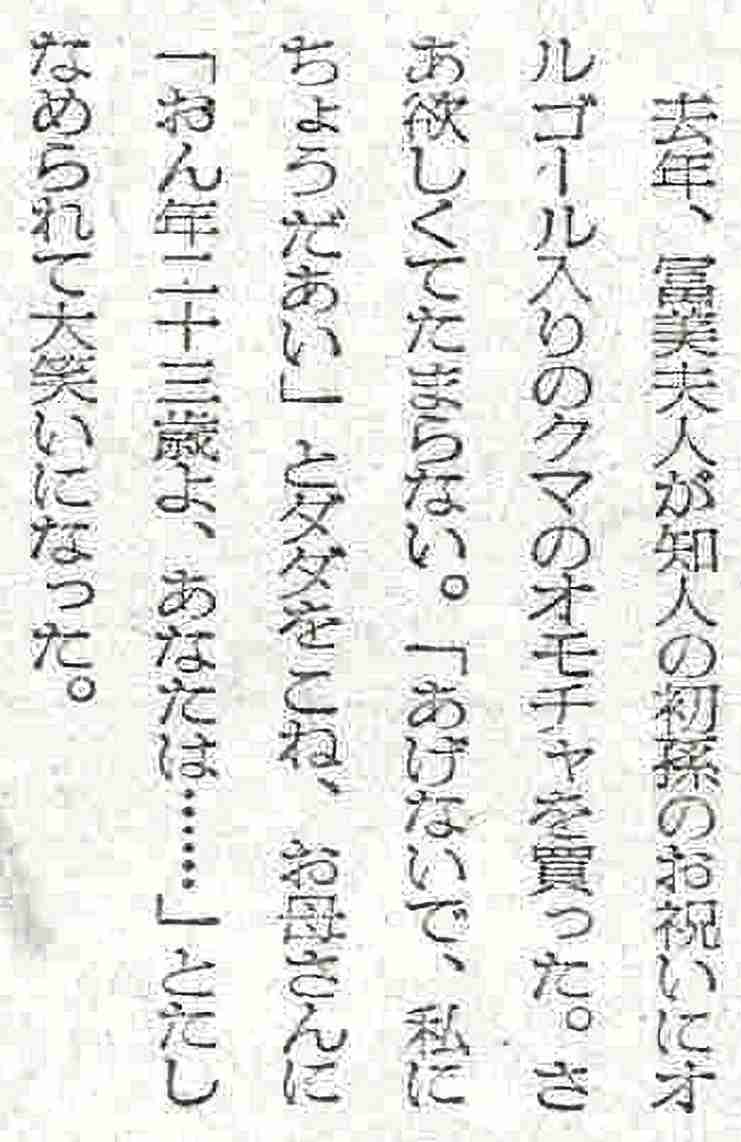 去年、冨美夫人が知人の初孫のお祝いにオ
ルゴール入りのクマのオモチャを買った。さ
あ欲しくてたまらない。「あげないで、私に
ちょうだあい」とダダをこね、お母さんに
「おん年二十三歳よ、あなたは……」とたし
なめられて大笑いになった。